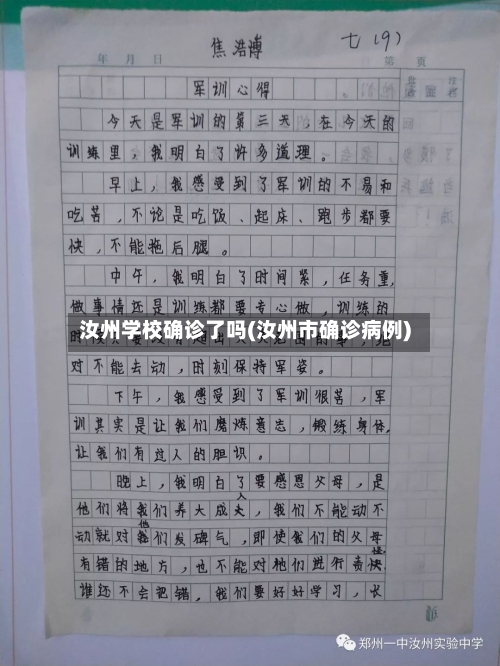 焦浩博 七(9)
年 月 日 第 页
军训心得
今天是军训的第三天，在今天的
训练里，我明白了许多道理。
早上，我感受到了军训的不易和
吃苦，不论是吃饭、起床、跑步都要
快，不能拖后腿。
中午，我明白了时间紧，任务重，
做事情还是训练都要专心做，训练的
汝州学校确诊了吗(汝州市确诊病例)
对不能去动，时刻保持军姿。
下午，我感受到了军训很苦，军
训其实是让我们磨炼意志，锻练身体，
让我们有过人的胆识。
晚上，我明白了要感恩父母，是
他们将我们养大成人，我们不能动不
动就对他们发碑气，即使我们的父母
有错的地方，也不能对她们进行责怪
谁还不会犯错，我们要好好学习，长
郑州一中汝州实验中学